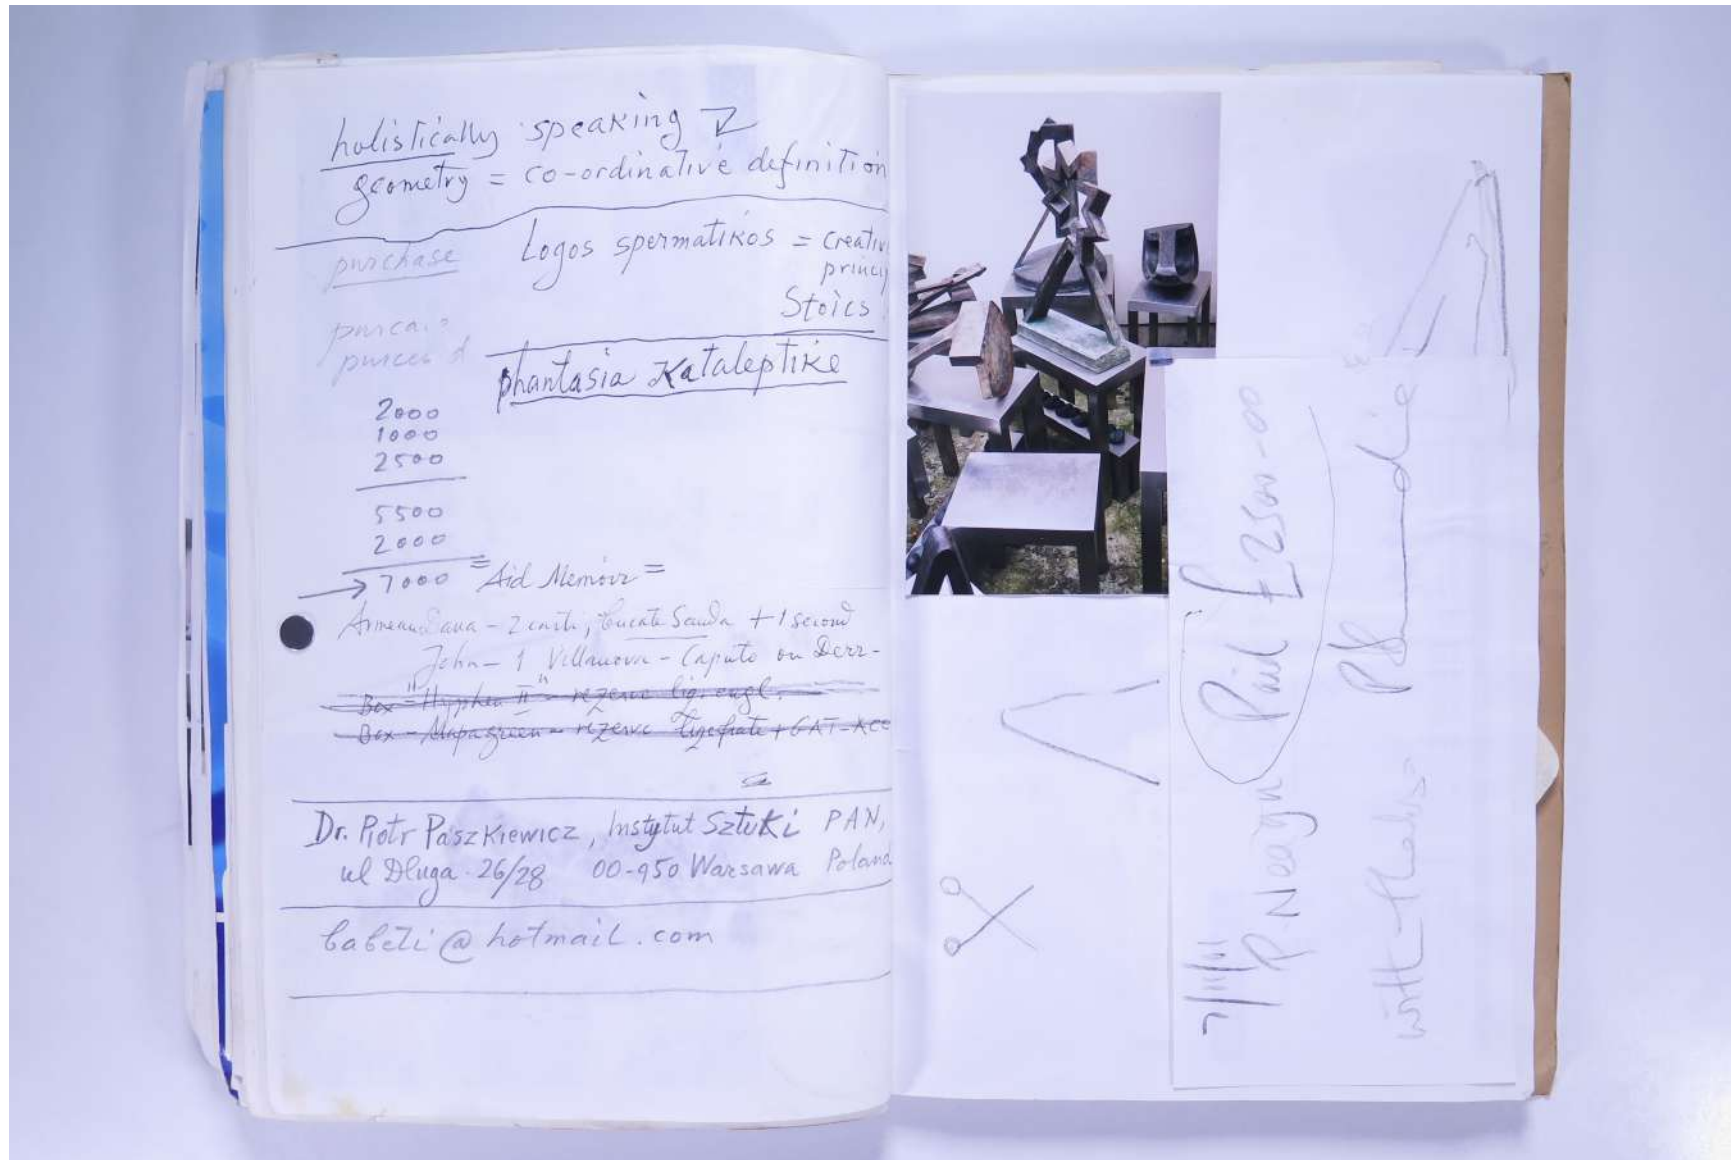 holistically speaking
geometry = co-ordinative definition
purchase
Logos spermatikos = creativ
princip
Stoics
phantasia Kataleptike
2000
1000
2500
5500
2000
→ 7000 = Aid Memoir =
Dana - 2 carti, bucate Sauda + 1 second
John - 1 Villanova - Caputo on Derr-
Box "Hyphen II" - rezerve lig. engl.
Box - - rezerve + GAT-
Dr. Piotr Paszkiewicz, Instytut Sztuki PAN,
ul Dluga 26/28 00-950 Warsawa Poland
babeti@hotmail.com
P. Neagu Paid £2500-00
with thanks